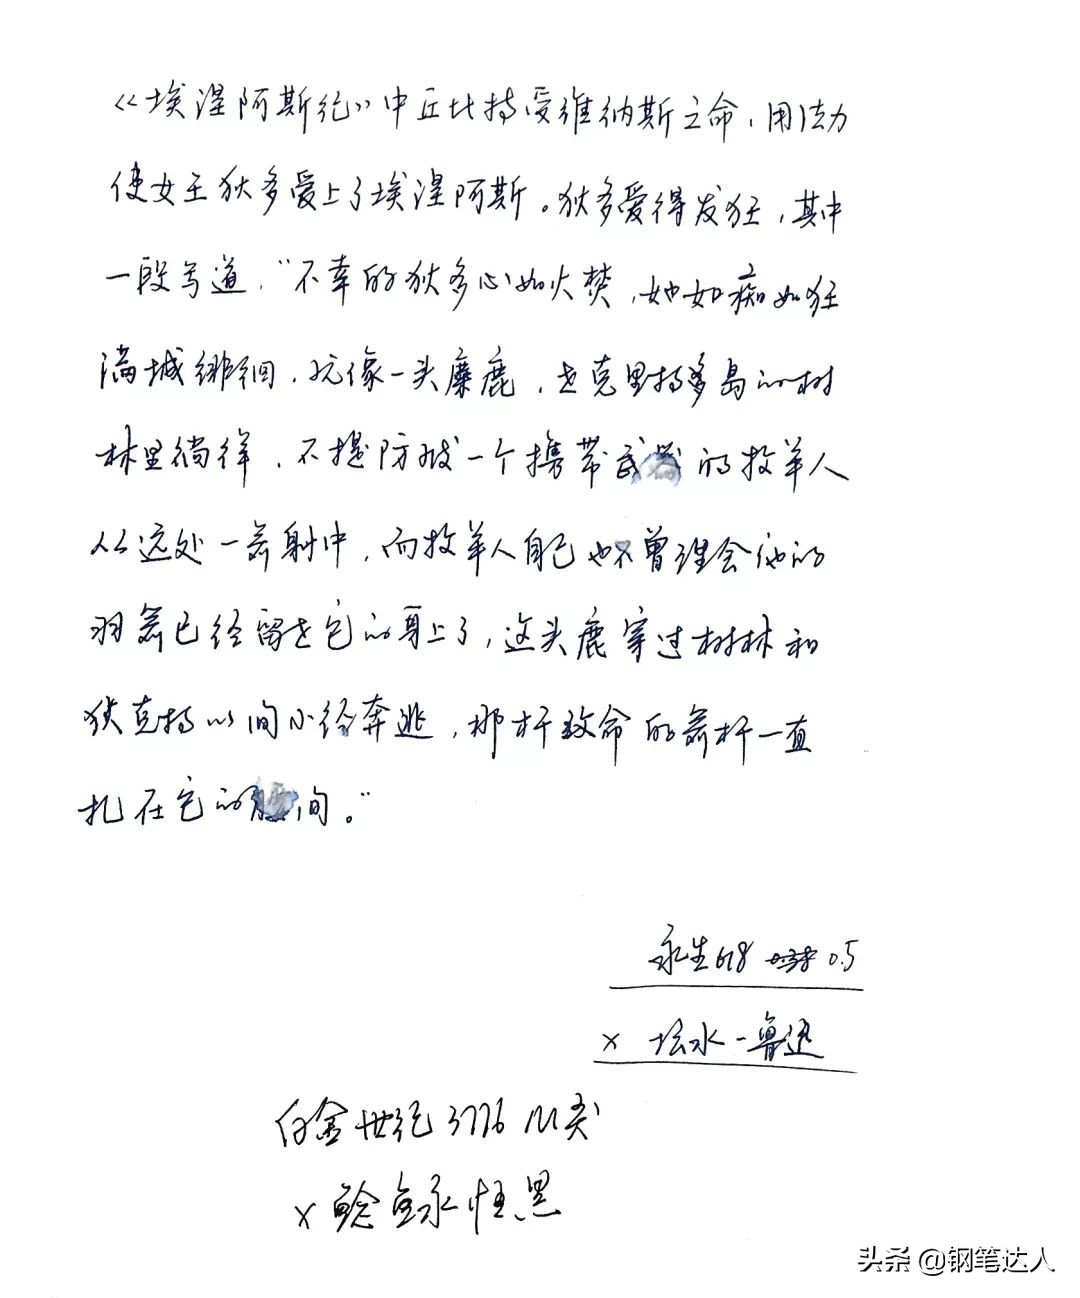 《埃涅阿斯纪》中丘比特受维纳斯之命，用法力
使女王狄多爱上了埃涅阿斯。狄多爱得发狂，其中
一段写道，“不幸的狄多心如火焚，她如痴如狂
满城徘徊，就像一头麋鹿，在克里特岛的树
林里徜徉，不提防被一个携带武器的牧羊人
从远处一箭射中，而牧羊人自己也不曾理会他的
羽箭已经留在它的身上了，这头鹿穿过树林和
狄克特山间小径奔逃，那杆致命的箭杆一直
扎在它的腰间。”
永生618 0.5
× 坛水-鲁迅
白金世纪3776 M尖
× 鲶鱼永恒黑
头条 @钢笔达人